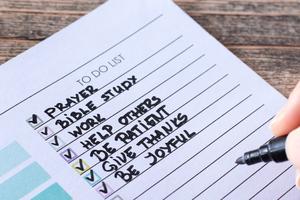 TO DO LIST
PRAYER
BIBLE STUDY
WORK
HELP OTHERS
BE PATIENT
GIVE THANKS
BE JOYFUL